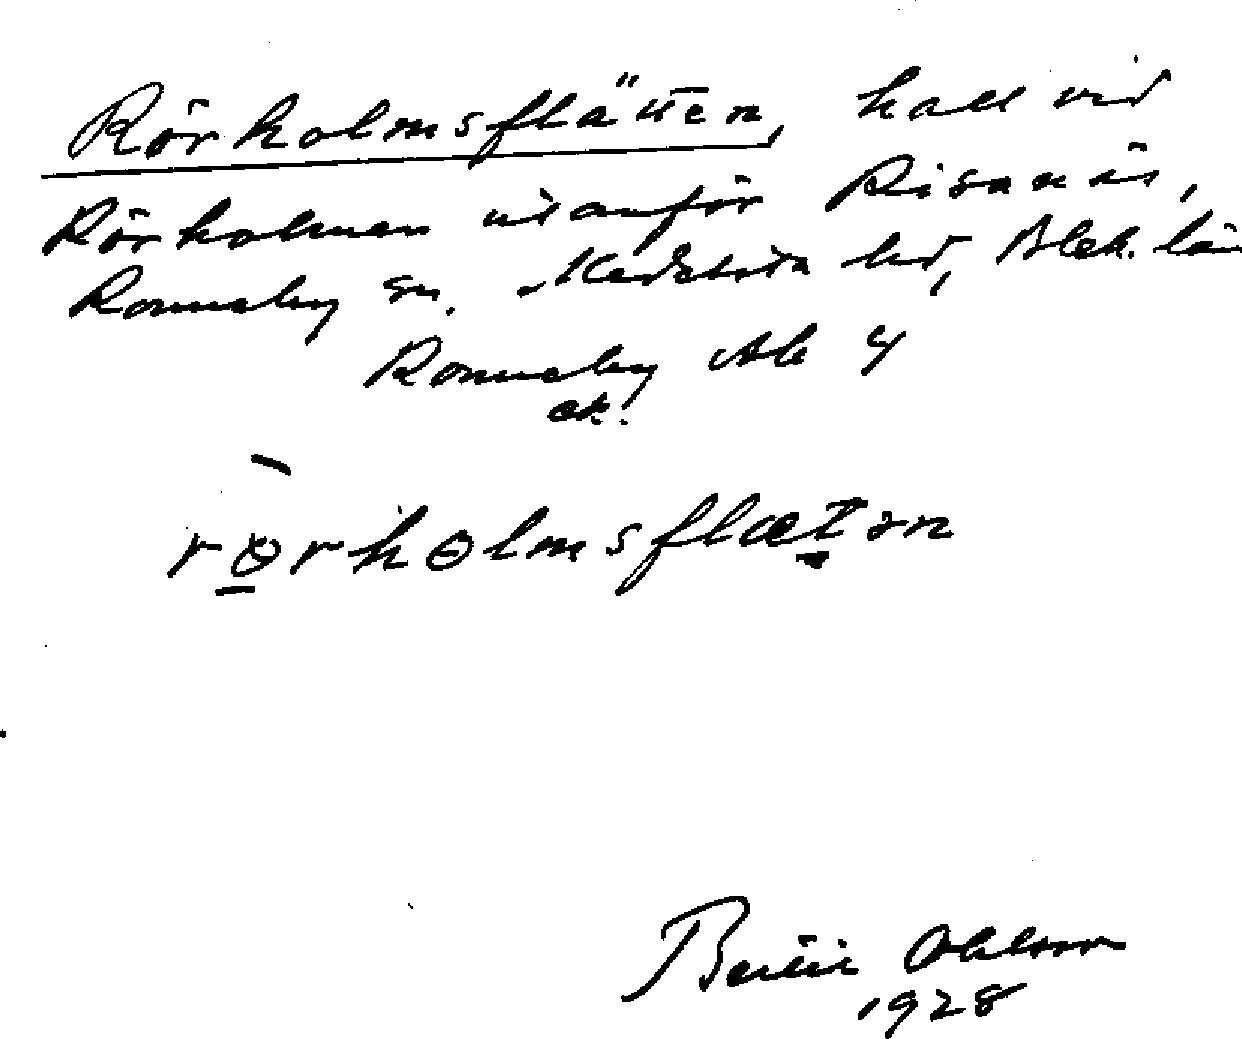 Rörholmsflätten, hall vid
Rörholmen utanför Risanäs,
Ronneby sn. Medelsta hd, Blek. län
Ronneby Ab 4
ek.
rørhɵlmsflætən
Bertil Ohlsson
1928